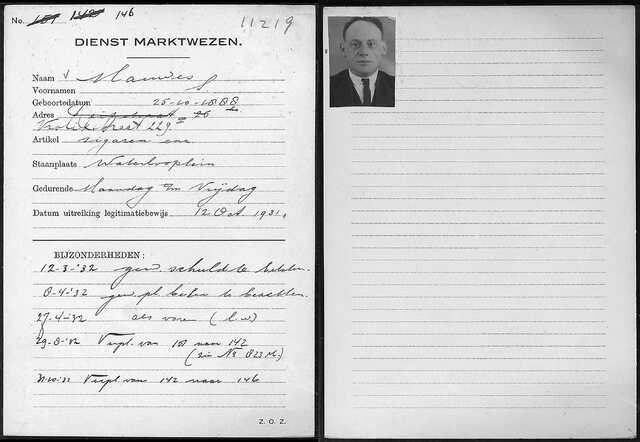 No. 101 142 146
11219
DIENST MARKTWEZEN.
Naam
Voornamen
Geboortedatum 25-10-1888
Adres 26
229 II
Artikel sigaren enz
Staanplaats Waterlooplein
Gedurende Maandag t/m Vrijdag
Datum uitreiking legitimatiebewijs 12 Oct. 1931.
BIJZONDERHEDEN:
12-3-'32 gew. schuld te betalen.
8-4-'32 gew. pl. beter te bezetten.
27-4-'32 als voren (l.w)
29-8-'32 Verpl. van 101 naar 142
(zie No 823 M.)
Verpl. van 142 naar 146
Z. O. Z.